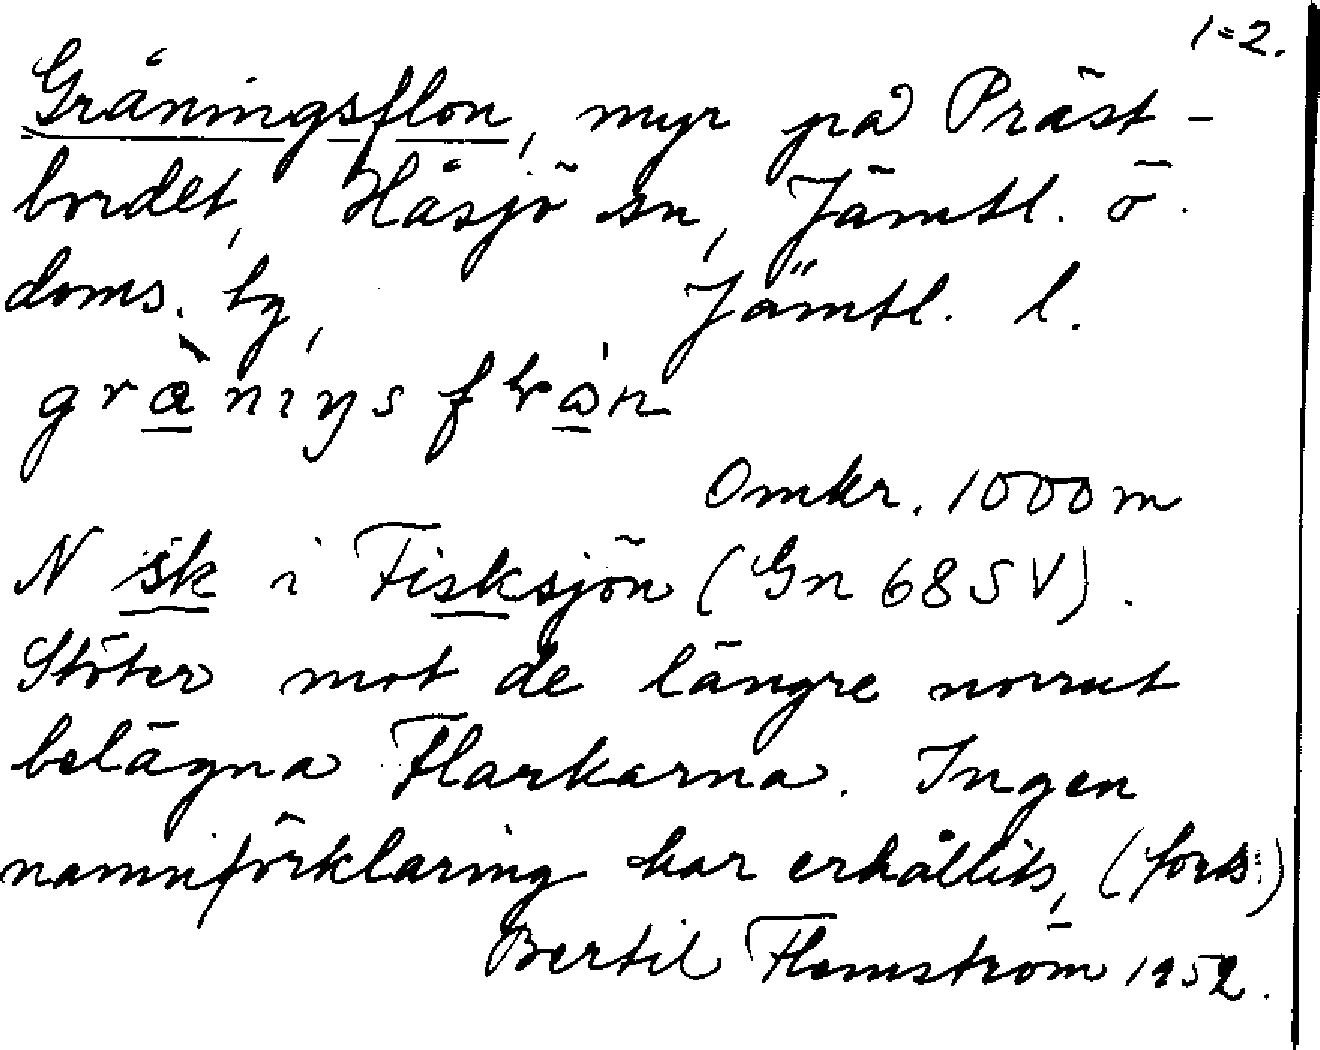 1=2.
Gråningsflon, myr på Präst-
bordet, Håsjö sn, Jämtl. ö.
doms. hg, Jämtl. l.
Omkr. 1000 m
N sk i Fisksjön (Gn 68 SV).
Stöter mot de längre norrut
belägna Flarkarna. Ingen
namnförklaring har erhållits, (forts.)
Bertil Flemström 1952.